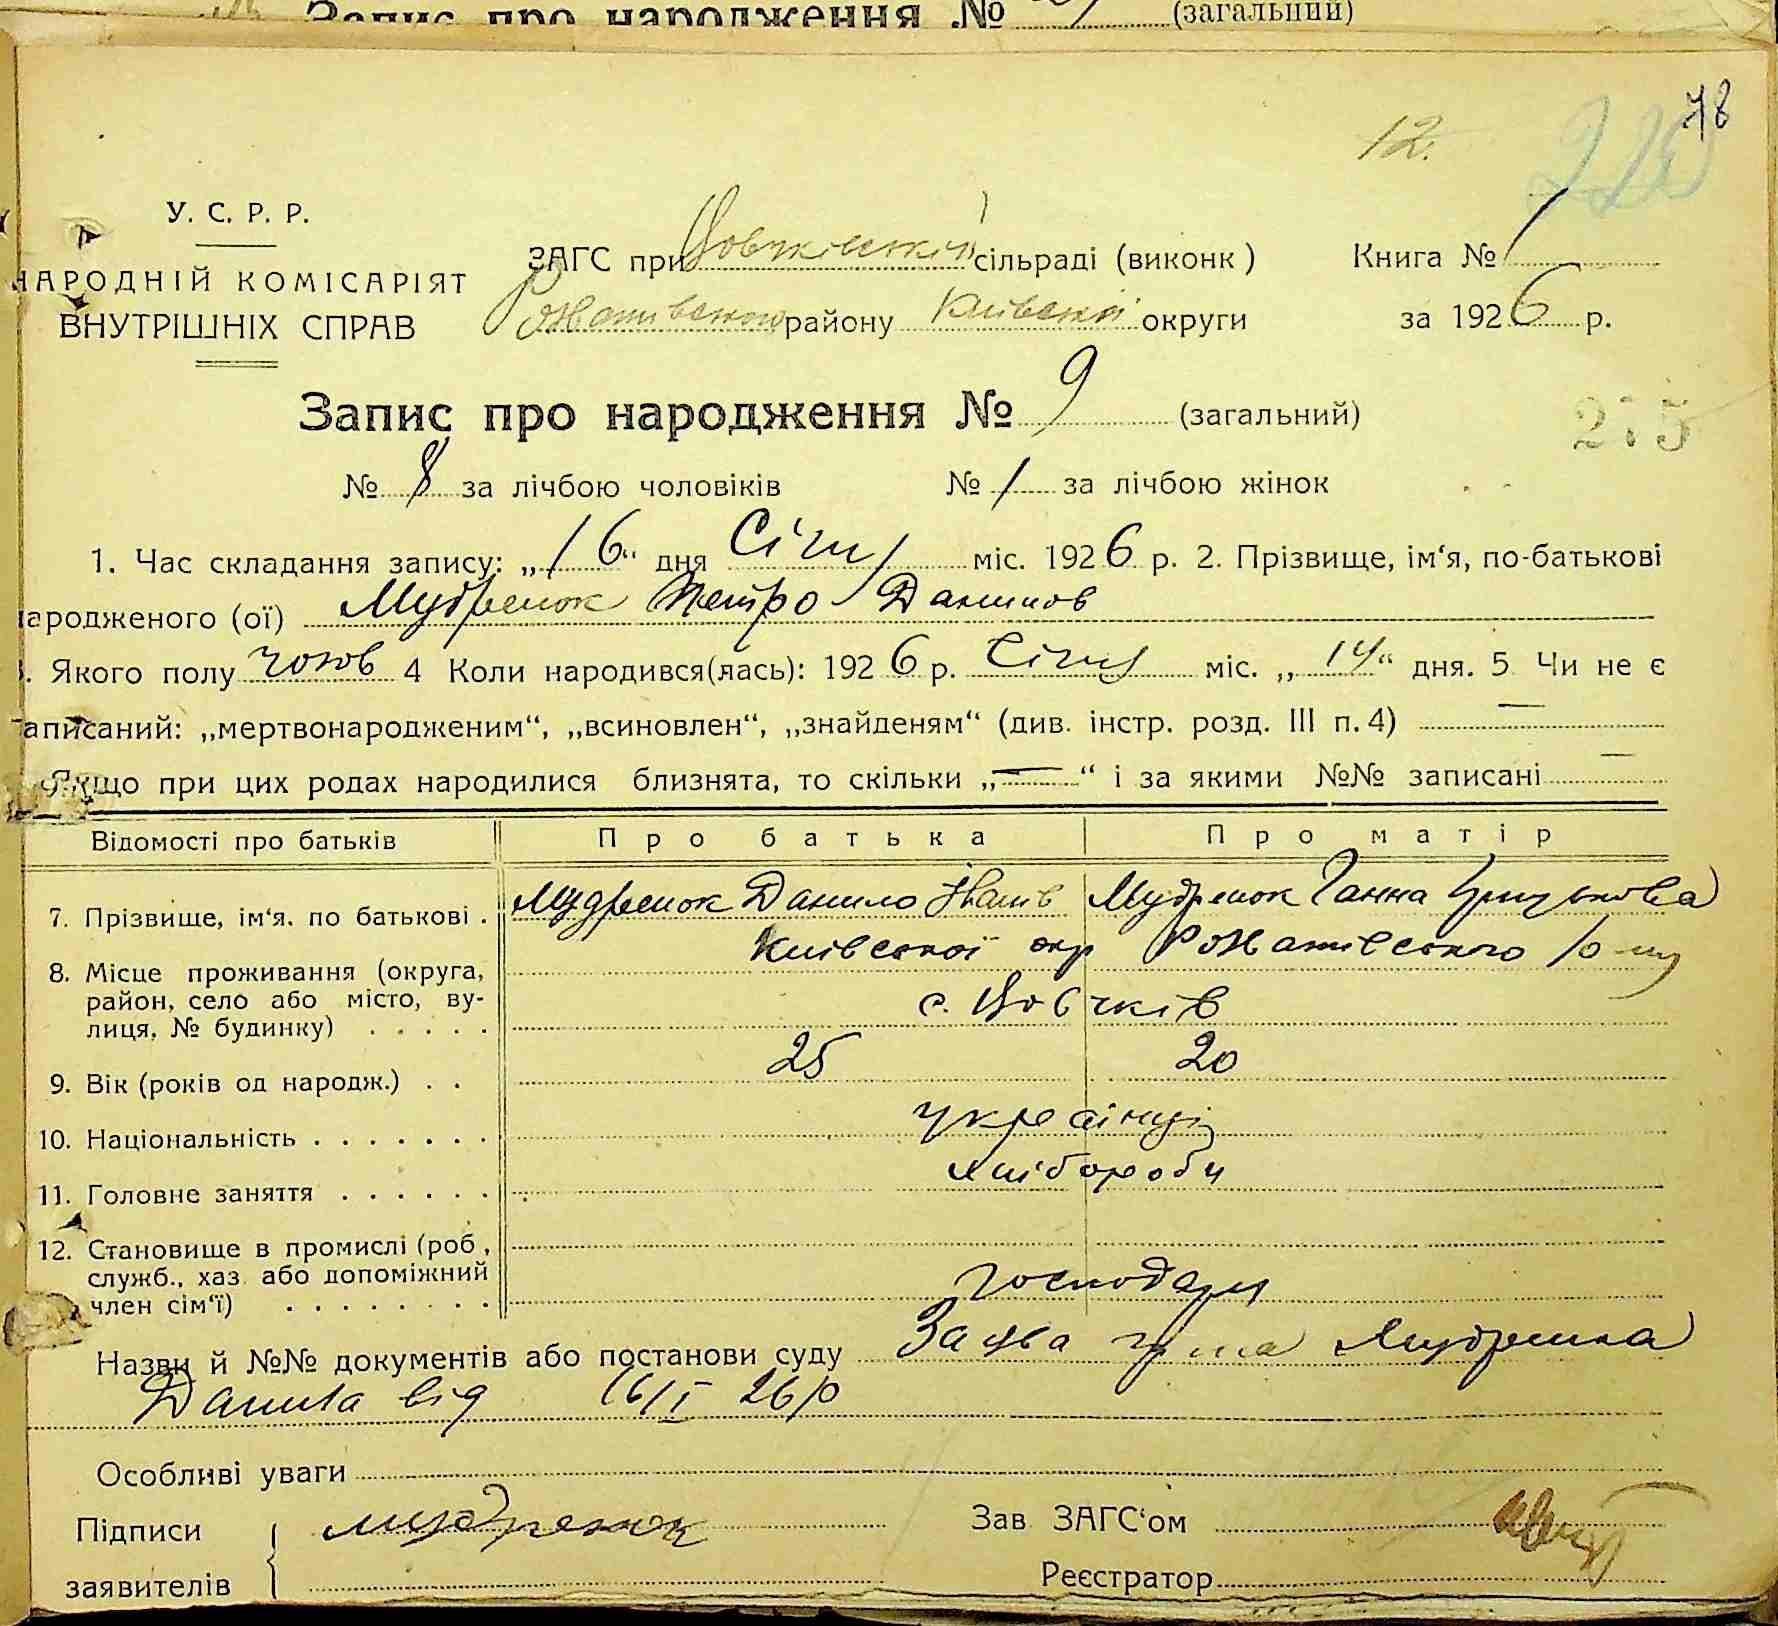 Запис про народження №
(загальний)
78
12.
225
У. С. Р. Р.
НАРОДНІЙ КОМІСАРІЯТ
ВНУТРІШНІХ СПРАВ
ЗАГС при Вовчківській сільраді (виконк)
Книга № 1
району Київської округи
за 1926 р.
Запис про народження № 9 (загальний)
275
№ 8 за лічбою чоловіків № 1 за лічбою жінок
1. Час складання запису: „16“ дня Січня міс. 1926 р. 2. Прізвище, ім‘я, по-батькові
народженого (ої) Мудренок Петро Данилов
. Якого полу чолов 4 Коли народився(лась): 1926 р. Січня міс. „14“ дня. 5 Чи не є
аписаний: „мертвонародженим“, „всиновлен“, „знайденям“ (див. інстр. розд. III п. 4) —
Якщо при цих родах народилися близнята, то скільки „—“ і за якими №№ записані —
Відомості про батьків Про батька Про матір
7. Прізвище, ім‘я. по батькові . Мудренок Данило Іванів Мудренок Ганна Грицькова
8. Місце проживання (округа, Київської окр
район, село або місто, ву-
лиця, № будинку) . . . . . с. Вовчків
9. Вік (років од народж.) . . 25 20
10. Національність . . . . . . . українці
11. Головне заняття . . . . . . Хлібороби
12. Становище в промислі (роб ,
служб., хаз. або допоміжний
член сім‘ї) . . . . . . . . Господарі
Назви й №№ документів або постанови суду Заява гр-на Мудренка
Данила від 16/I 26 р
Особливі уваги
Підписи мудренок Зав ЗАГС‘ом
заявителів Реєстратор